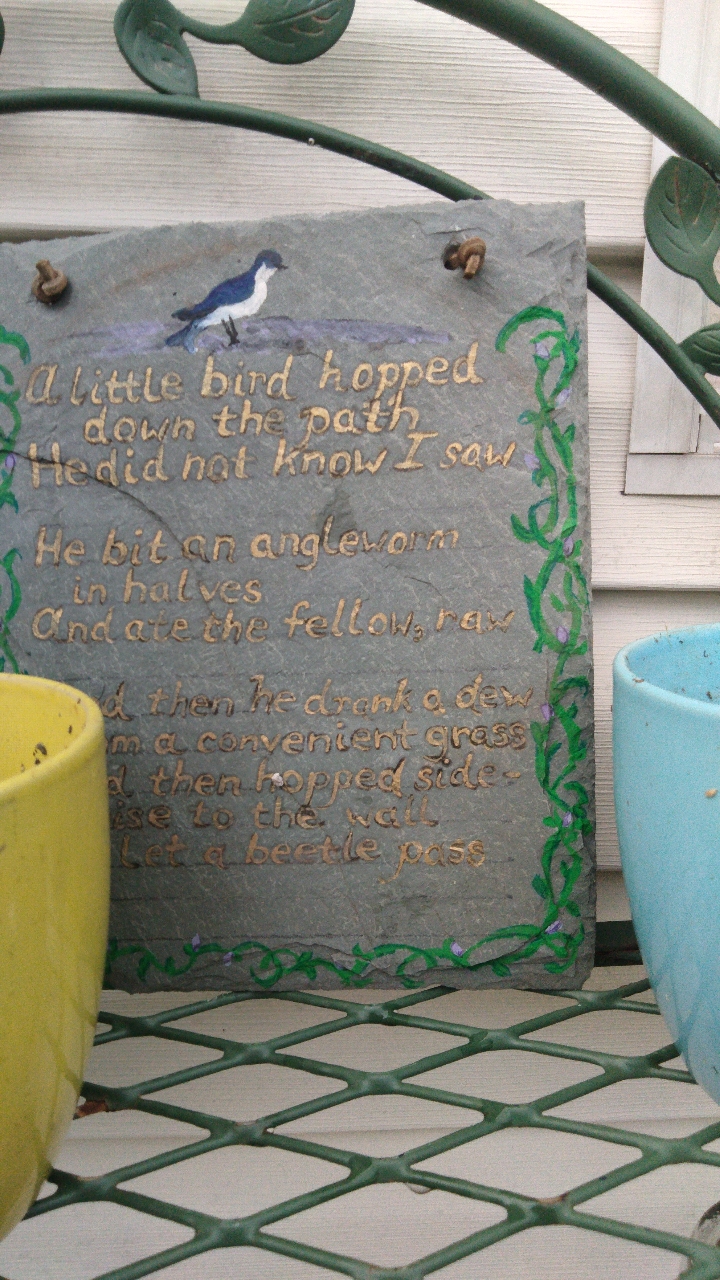 A little bird hopped
down the path
He did not know I saw
He bit an angleworm
in halves
And ate the fellow, raw
d then he drank a dew
m a convenient grass
d then hopped side-
ise to the wall
let a beetle pass